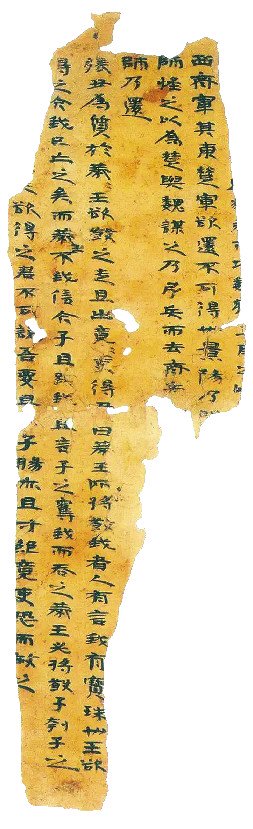 西齊軍其東楚軍欲還不可得也景陽乃
師怪之以為楚與魏謀之乃引兵而去齊兵
師乃還
張丑為質於燕王欲殺之走且出竟吏得丑曰燕王所將殺我者人有言我有寶珠也王欲
得之今我已亡之矣而燕王不我信今子且致我且言子之奪我而吞之燕王必將殺子刳子之
欲得之君不可說吾要且子腸亦且寸絕竟吏恐而赦之